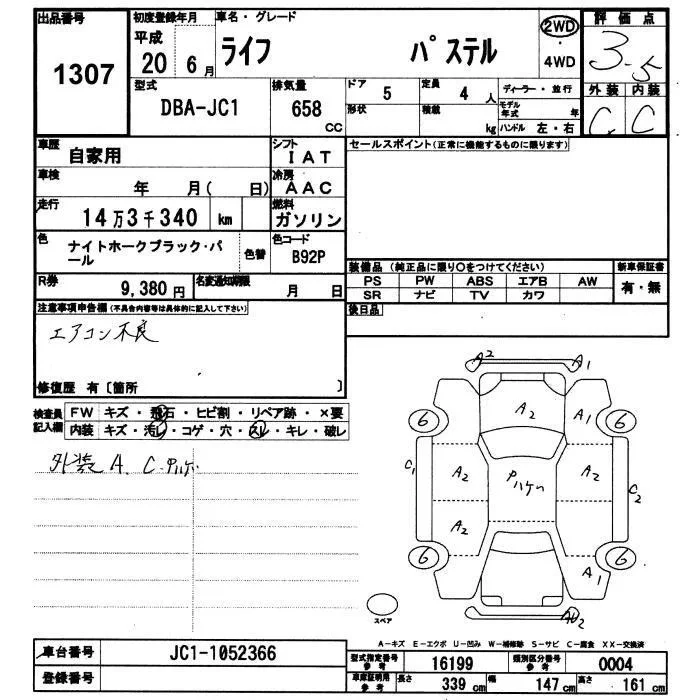 出品番号
1307
初度登録年月
平成
20年 6月
車名・グレード
ライフ パステル
2WD
・
4WD
評価点
3.5
外装 内装
C C
型式
DBA-JC1
排気量
658
CC
ドア 5
定員 4 人
形状
積載 kg
ディーラー・並行
モデル年式 年
ハンドル 左・右
車歴 自家用
シフト IAT
車検 年 月( 日)
冷房 AAC
走行 14万3千340 km
燃料 ガソリン
色 ナイトホークブラック・パール
色替
色コード B92P
R券 9,380円
名変通知期限 月 日
セールスポイント(正常に機能するものに限ります)
装備品(純正品に限り○をつけてください)
新車保証書
PS PW ABS エアB AW
SR ナビ TV カワ
有・無
後日品
注意事項申告欄(不具合内容等は具体的に記入して下さい)
エアコン不良
修復歴 有〔箇所 〕
検査員記入欄
FW キズ・飛石・ヒビ割・リペア跡・×要
内装 キズ・汚レ・コゲ・穴・スレ・キレ・破レ
外装 A、C・Pハゲ
A2 A1
A2 A1
6 6
C1 A2 Pハゲ A2 C2
A2
6 6
A1
A2
スペア
A-キズ E-エクボ U-凹み W-補修跡 S-サビ C-腐食 XX-交換済
車台番号 JC1-1052366
登録番号
型式指定番号参考 16199
類別区分番号参考 0004
車庫証明用参考 長さ 339cm 幅 147cm 高さ 161cm